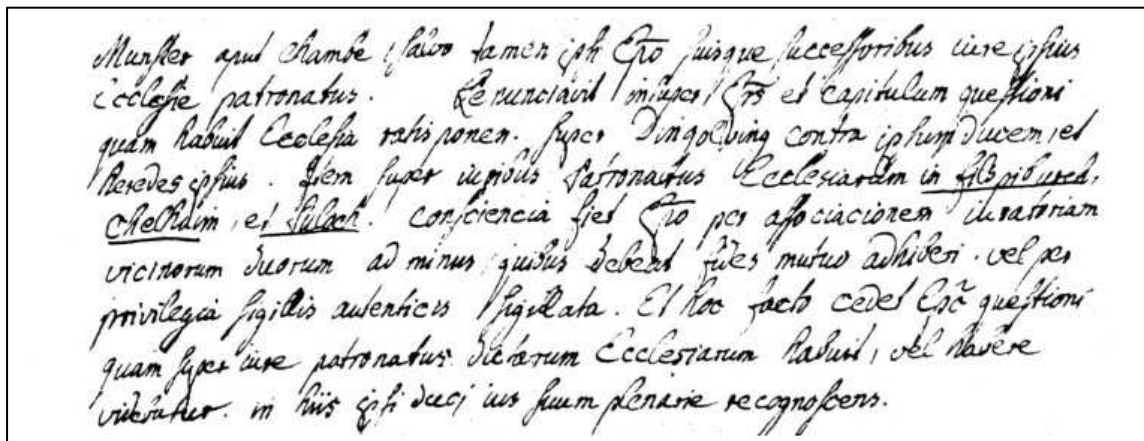 Munster aput Chambe, salvo tamen ipsi Epo suisque successoribus iure ipsius
Ecclesie patronatus. Renunciavit insuper Eps et capitulum questioni
quam habuit Ecclesia ratisponen. super Dingolving contra ipsum ducem, et
heredes ipsius. Item super iuribus Patronatus Ecclesiarum in
Chelhaim, et Suloch. consciencia fiet Epo per associacionem iuratoriam
vicinorum duorum ad minus, quibus debent fides mutuo adhiberi. vel per
privilegia sigillis autenticis sigillata. Et hoc facto cedet Epc questioni
quam super iure patronatus dictarum Ecclesiarum habuit, vel habere
videtur. in hiis ipsi duci ius suum plenarie recognoscens.